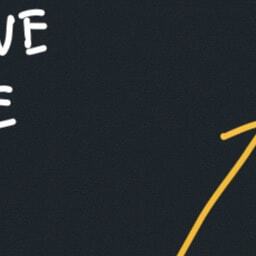 VE
E